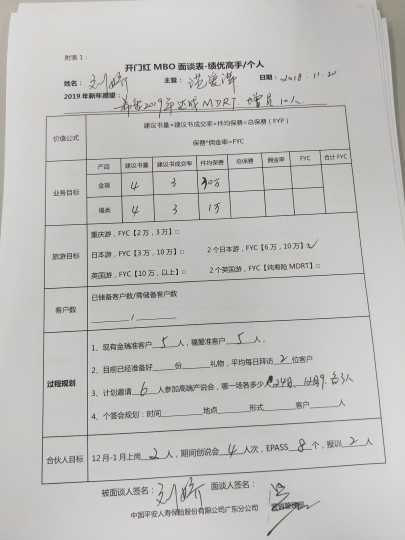 附表1：
开门红MBO面谈表-绩优高手/个人
姓名：刘娇 主管： 日期：2018.11.20
2019年新年愿望：
希望2019年达成MDRT.增员10人
价值公式 建议书量×建议书成交率×件均保费=总保费（FYP）
保费*佣金率=FYC
业务目标 产品 建议书量 建议书成交率 件均保费 总保费 佣金率 FYC 合计FYC
金瑞 4 3 30万
福类 4 3 1万
旅游目标 重庆游，FYC【2万，3万】□
日本游，FYC【3万，10万】□ 2个日本游，FYC【6万，10万】√
英国游，FYC【10万，以上】□ 2个英国游，FYC【纯寿险MDRT】□
客户数 已储备客户数/需储备客户数
/
过程规划 1、现有金瑞准客户5人，福爱准客户5人，
2、目前已经准备好 份 礼物，平均每日拜访2位客户
3、计划邀请6人参加高端产说会，哪一场各多少人24日、12月9.各3人
4、个答会规划：时间 地点 形式 客户 人
合伙人目标 12月-1月上岗2人，期间创说会4人次，EPASS 8个，报训2人
被面谈人签名：刘娇 面谈人签名：
中国平安人寿保险股份有限公司广东分公司